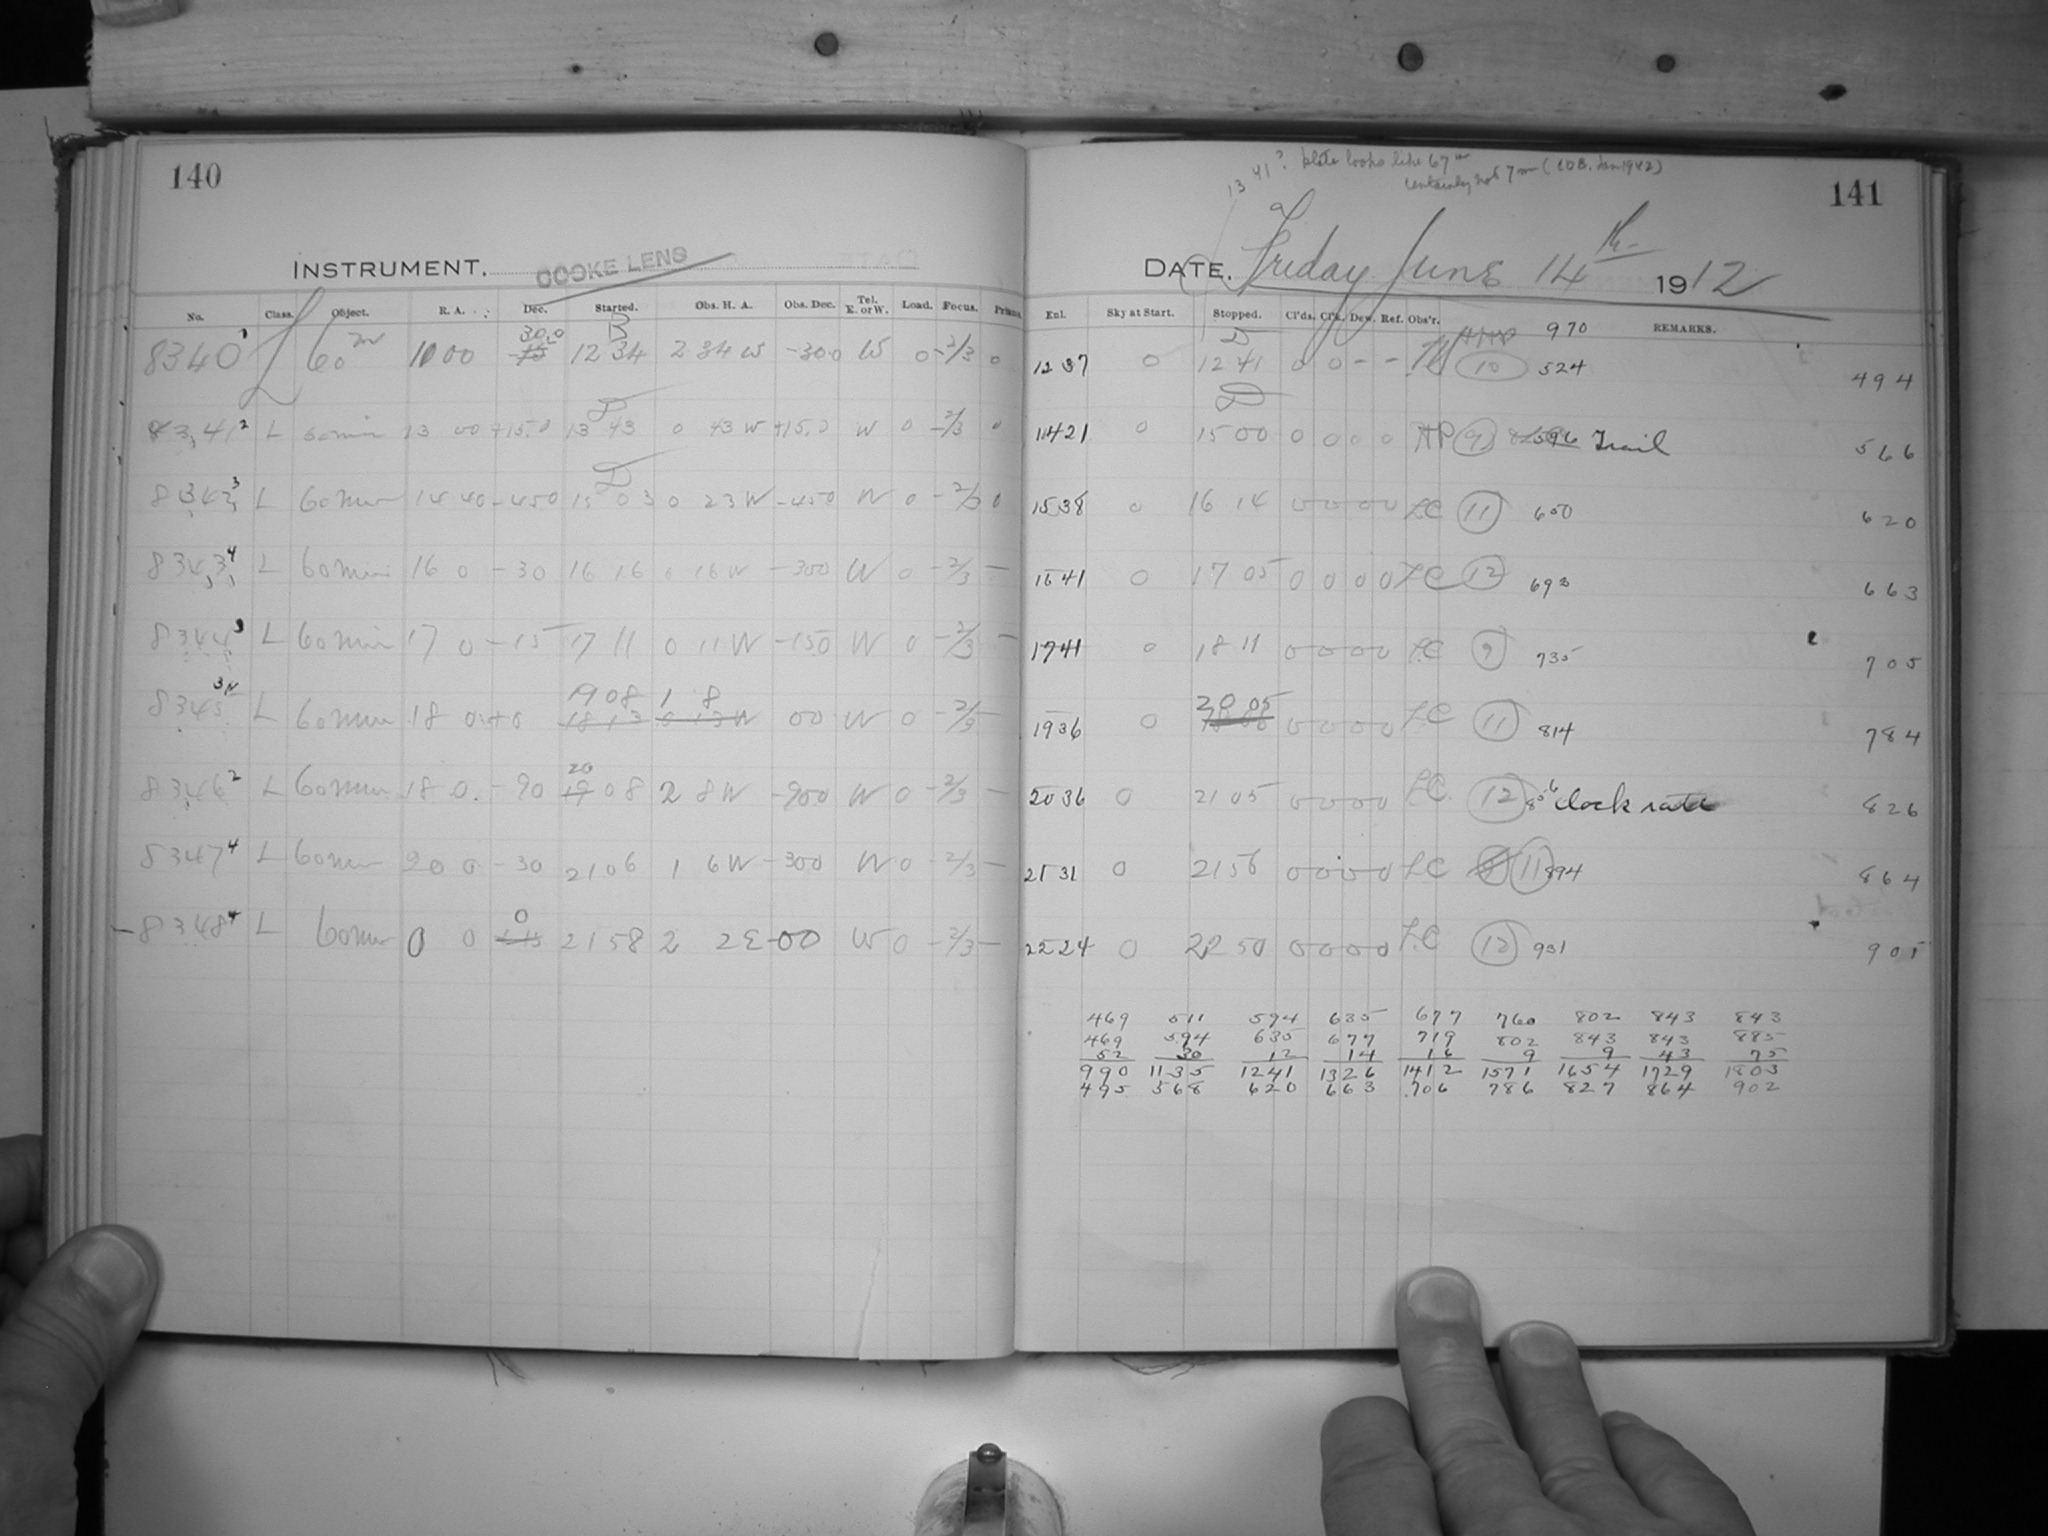 140
INSTRUMENT. COOKE LENS
No. Class. Object. R. A. Dec. Started. Obs. H. A. Obs. Dec. Tel. E. or W. Load. Focus.
8340 L 60m 10 00 30.0 12 34 2 34 W -300 W 0 -2/3 0
8341 2 L 60 min 13 00 +15.0 13 43 0 43 W +15.0 W 0 -2/3 0
8342 3 L 60 min 14 40 -450 15 03 0 23 W -450 W 0 -2/3 0
8343 4 L 60 min 16 0 -30 16 16 0 16 W -300 W 0 -2/3 -
8344 L 60 min 17 0 -15 17 11 0 11 W -150 W 0 -2/3 -
19 08 1 8
8345 L 60 min 18 0 +0 18 13 0 13 W 00 W 0 -2/3 -
20
8346 2 L 60 min 18 0. -90 19 08 2 8 W -900 W 0 -2/3 -
8347 4 L 60 min 20 0 -30 21 06 1 6 W -300 W 0 -2/3 -
0
-8348 4 L 60 min 0 0 21 58 2 2 E -00 W 0 -2/3 -
13 41? plate looks like 67m
certainly not 7m (Jan 1942)
141
DATE. Friday June 14th 1912
Exl. Sky at Start. Stopped. Cl'ds. Cl'k. Dew. Ref. Obs'r. REMARKS.
970
12 37 0 12 41 0 0 - - 10 524 494
14 21 0 15 00 0 0 0 0 AP 9 596 Trail 566
15 38 0 16 14 0 0 0 0 LC 11 650 620
16 41 0 17 05 0 0 0 0 LC 12 693 663
17 41 0 18 11 0 0 0 0 LC 9 735 705
19 36 0 20 05 0 0 0 0 LC 11 814 784
20 36 0 21 05 0 0 0 0 LC 12 856 clock rate 826
21 31 0 21 56 0 0 0 0 LC 11 894 864
22 24 0 22 50 0 0 0 0 LC 12 931 901
469 511 594 635 677 760 802 843 843
469 594 635 677 719 802 843 843 885
52 30 12 14 16 9 9 43 75
990 1135 1241 1326 1412 1571 1654 1729 1803
495 568 620 663 706 786 827 864 902